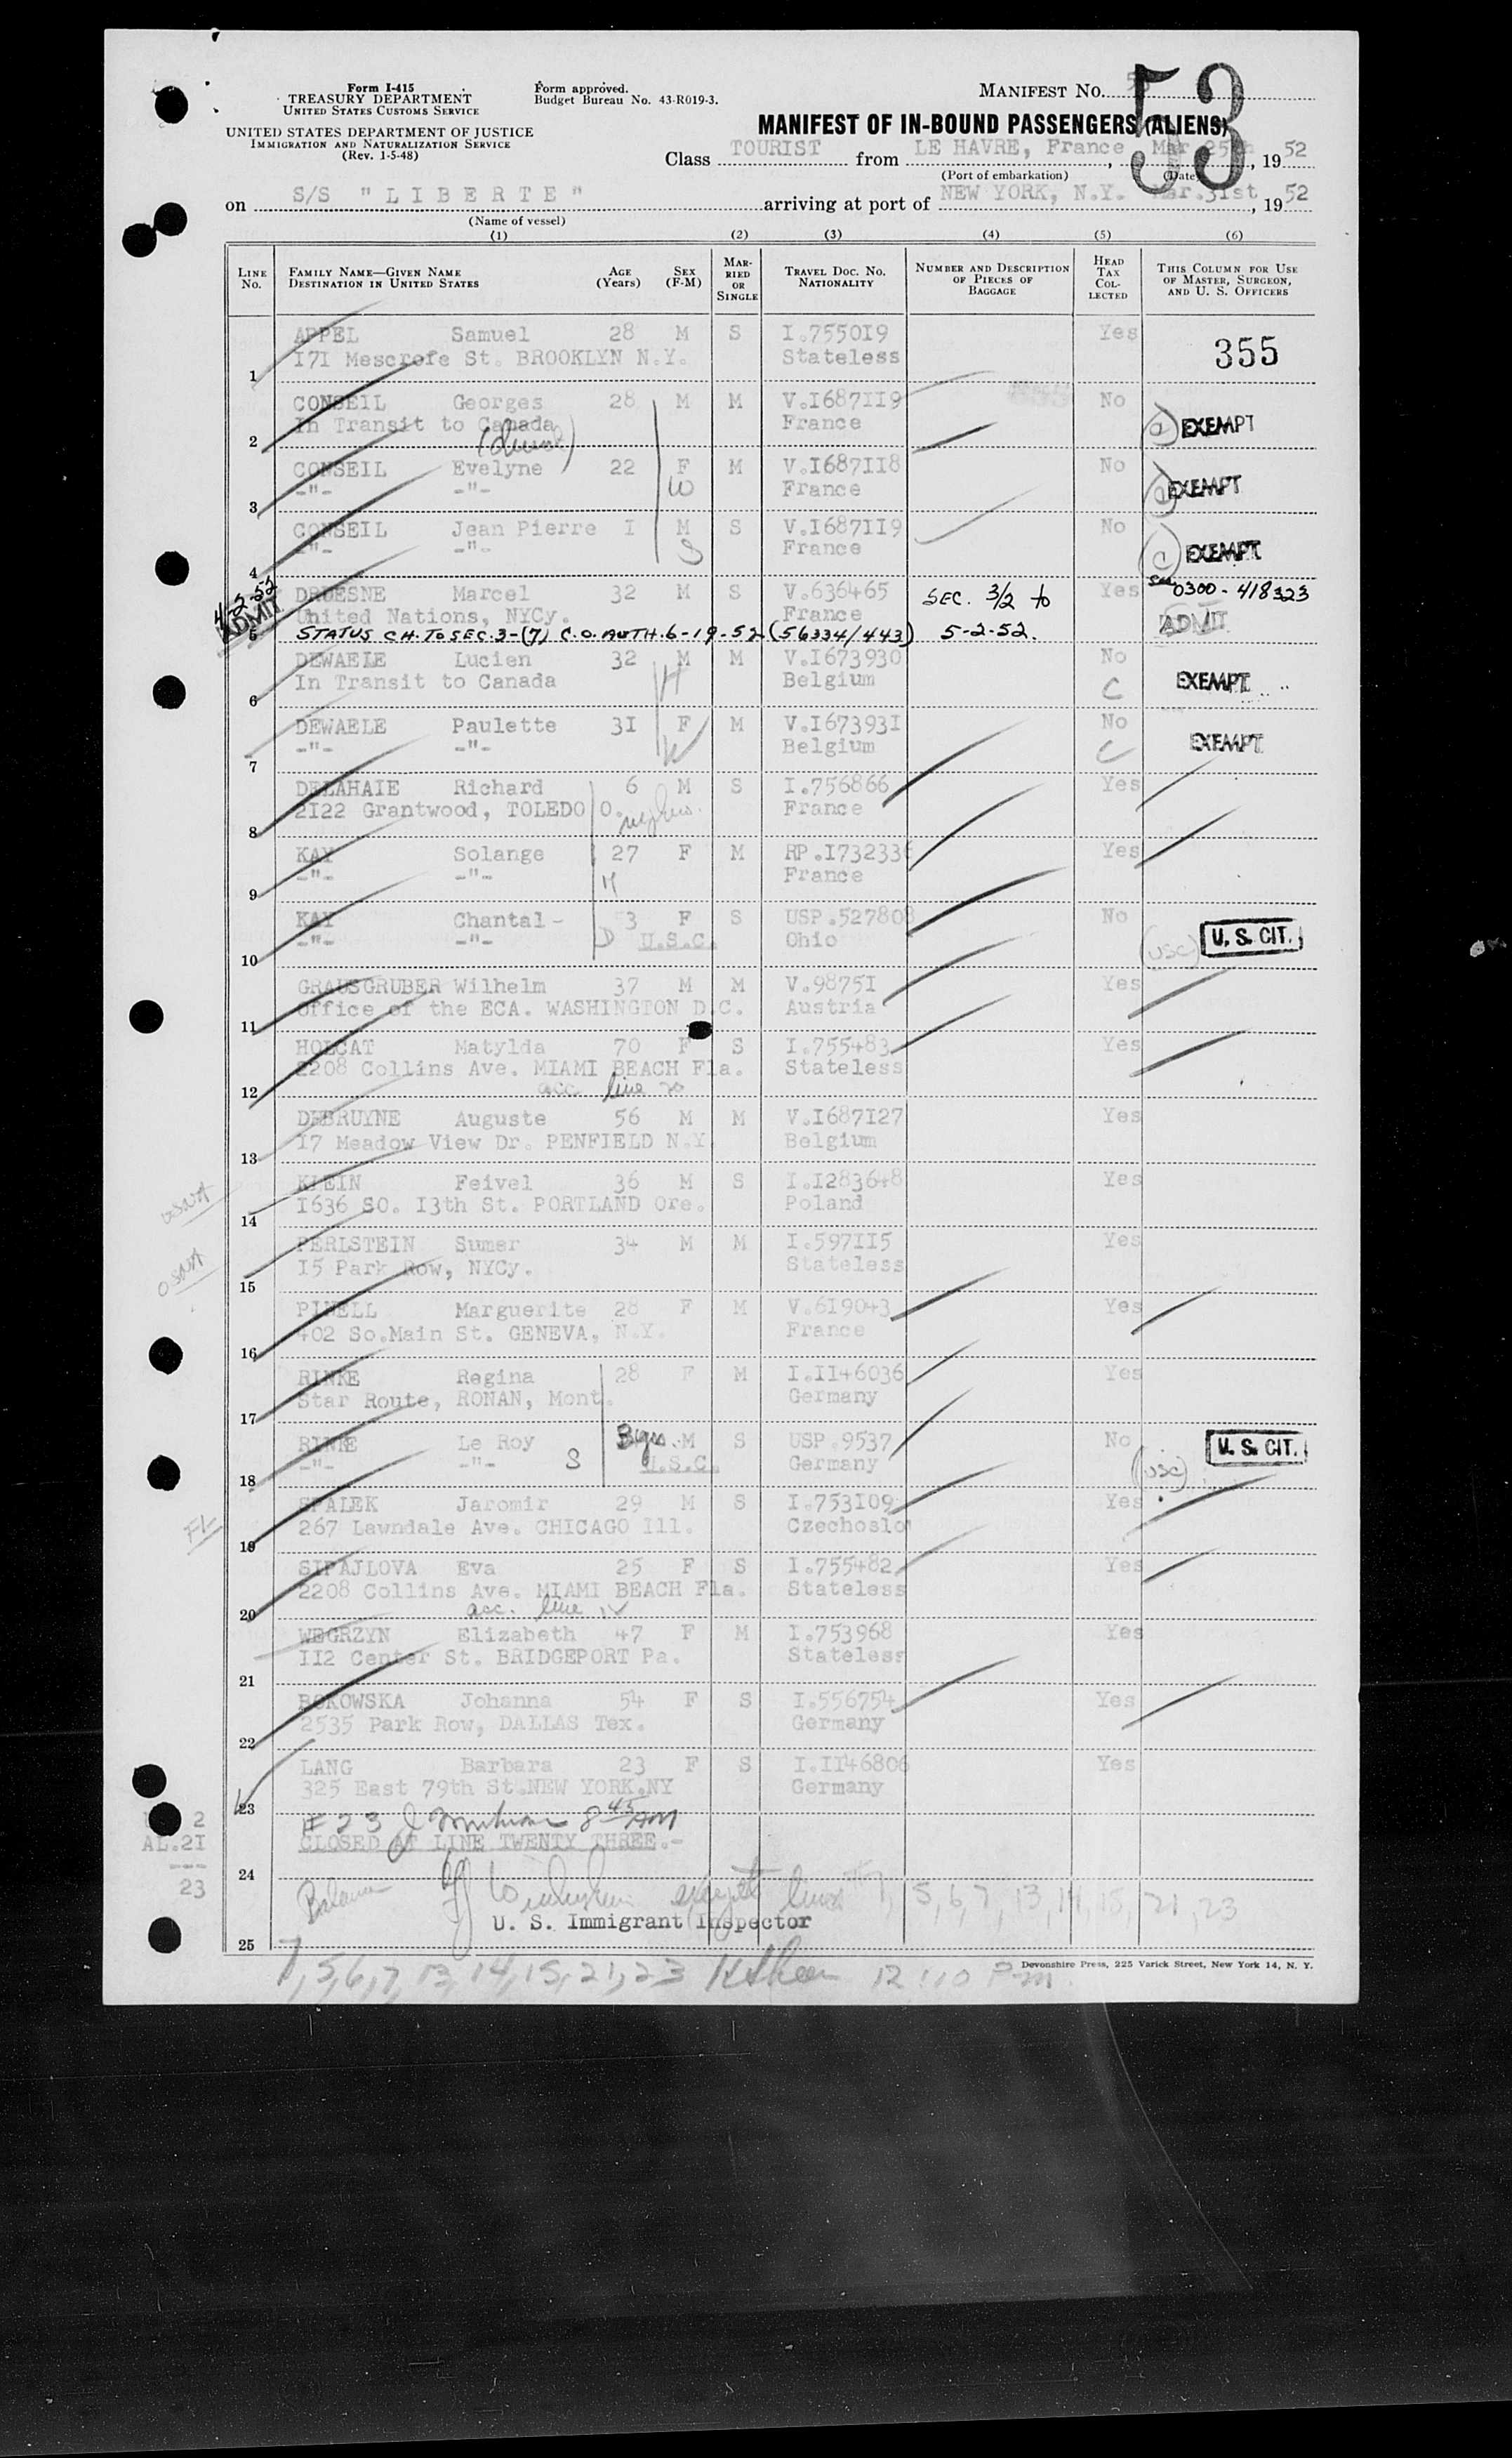 Form I-415
TREASURY DEPARTMENT
UNITED STATES CUSTOMS SERVICE
UNITED STATES DEPARTMENT OF JUSTICE
IMMIGRATION AND NATURALIZATION SERVICE
(Rev. 1-5-48)
Form approved.
Budget Bureau No. 43-R019-3.
MANIFEST NO. 53
MANIFEST OF IN-BOUND PASSENGERS (ALIENS)
Class TOURIST from LE HAVRE, France, Mar 25th, 1952
(Port of embarkation) (Date)
on S/S "LIBERTE" arriving at port of NEW YORK, N.Y. Mar.31st, 1952
(Name of vessel)
(1) (2) (3) (4) (5) (6)
LINE No. FAMILY NAME—GIVEN NAME DESTINATION IN UNITED STATES AGE (Years) SEX (F-M) MARRIED OR SINGLE TRAVEL DOC. NO. NATIONALITY NUMBER AND DESCRIPTION OF PIECES OF BAGGAGE HEAD TAX COLLECTED THIS COLUMN FOR USE OF MASTER, SURGEON, AND U. S. OFFICERS
APPEL Samuel 28 M S I.755019 Yes 355
1 171 Mescrofe St. BROOKLYN N.Y. Stateless
CONSEIL Georges 28 M M V.I687119 No
2 In Transit to Canada France EXEMPT
CONSEIL Evelyne 22 F M V.I687118 No
3 -"- -"- W France EXEMPT
CONSEIL Jean Pierre I M S V.I687119 No
4 -"- -"- S France EXEMPT
4-2-52 DRUESNE Marcel 32 M S V.636465 SEC. 3/2 to Yes 0300-418323
ADMIT United Nations, NYCy. France ADMIT
5 STATUS CH. TO SEC. 3-(7) C.O. AUTH. 6-19-52 (56334/443) 5-2-52.
DEWAELE Lucien 32 M M V.I673930 No
6 In Transit to Canada H Belgium C EXEMPT
DEWAELE Paulette 31 F M V.I673931 No
7 -"- -"- W Belgium C EXEMPT
DELAHAIE Richard 6 M S I.756866 Yes
8 2122 Grantwood, TOLEDO O. nephew. France
KAY Solange 27 F M RP.I732336 Yes
9 -"- -"- France
KAY Chantal - 3 F S USP.527808 No
10 -"- -"- D U.S.C. Ohio (USC) U. S. CIT.
GRAUSGRUBER Wilhelm 37 M M V.98751 Yes
11 Office of the ECA. WASHINGTON D.C. Austria
HOLCAT Matylda 70 F S I.755483 Yes
2208 Collins Ave. MIAMI BEACH Fla. Stateless
12 acc line 20
DEBRUYNE Auguste 56 M M V.I687127 Yes
13 17 Meadow View Dr. PENFIELD N.Y. Belgium
KLEIN Feivel 36 M S I.I283648 Yes
14 1636 SO. 13th St. PORTLAND Ore. Poland
PERLSTEIN Sumer 34 M M I.597115 Yes
15 15 Park Row, NYCy. Stateless
PINELL Marguerite 28 F M V.619043 Yes
16 402 So.Main St. GENEVA, N.Y. France
RINKE Regina 28 F M I.I146036 Yes
17 Star Route, RONAN, Mont. Germany
RINKE Le Roy 3 yrs. M S USP.9537 No U. S. CIT.
18 -"- -"- S U.S.C. Germany (USC)
SPALEK Jaromir 29 M S I.753109 Yes
19 267 Lawndale Ave. CHICAGO Ill. Czechoslov
SIPAJLOVA Eva 25 F S I.755482 Yes
2208 Collins Ave. MIAMI BEACH Fla. Stateless
20 acc. line 12
WEGRZYN Elizabeth 47 F M I.753968 Yes
21 112 Center St. BRIDGEPORT Pa. Stateless
BOKOWSKA Johanna 54 F S I.556754 Yes
22 2535 Park Row, DALLAS Tex. Germany
LANG Barbara 23 F S I.I146806 Yes
325 East 79th St.NEW YORK.NY Germany
23 # 23 8 45 AM
2
AL.21 CLOSED AT LINE TWENTY THREE.-
---
23
24 Balance except lines 1, 5, 6, 7, 13, 14, 15, 21, 23
U. S. Immigrant Inspector
25
1, 5, 6, 7, 13, 14, 15, 21, 23 12:10 P.m.
Devonshire Press, 225 Varick Street, New York 14, N. Y.